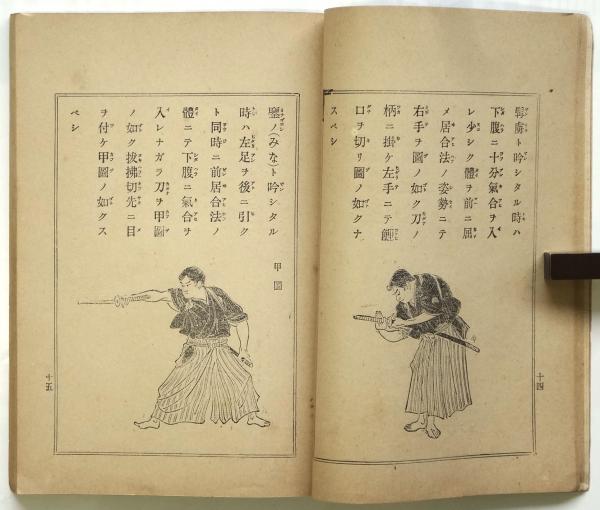 髣髴ト吟シタル時ハ
下腹ニ十分氣合ヲ入
レ少シク體ヲ前ニ屈
メ居合法ノ姿勢ニテ
右手ヲ圖ノ如ク刀ノ
柄ニ掛ケ左手ニテ鯉
口ヲ切リ圖ノ如クナ
スベシ
十四
鏖ノ(みな)ト吟シタル
時ハ左足ヲ後ニ引ク
ト同時ニ前居合法ノ
體ニテ下腹ニ氣合ヲ
入レナガラ刀ヲ甲圖
ノ如ク拔拂切先ニ目
ヲ付ケ甲圖ノ如クス
ベシ
甲圖
十五